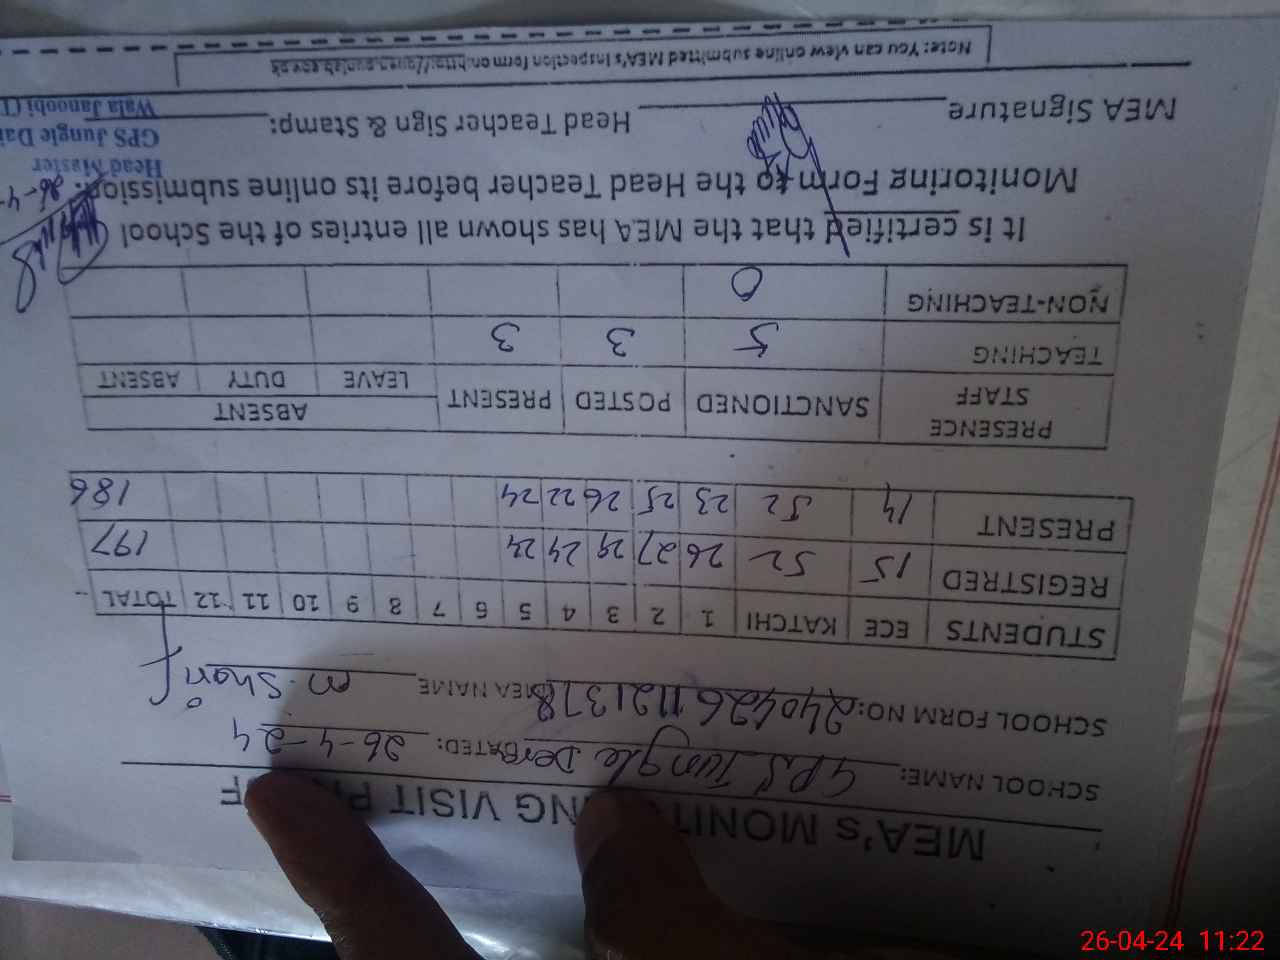 MEA's MONITORING VISIT PROOF
SCHOOL NAME: GPS Jungle DATED: 26-4-24
SCHOOL FORM NO: 2404261121378 MEA NAME M. Sharif
STUDENTS ECE KATCHI 1 2 3 4 5 6 7 8 9 10 11 12 TOTAL
REGISTRED 15 52 26 27 29 24 24 197
PRESENT 14 52 23 25 26 22 24 186
PRESENCE STAFF SANCTIONED POSTED PRESENT ABSENT
LEAVE DUTY ABSENT
TEACHING 5 3 3
NON-TEACHING 0
It is certified that the MEA has shown all entries of the School
Monitoring Form to the Head Teacher before its online submission.
26-4-
MEA Signature Head Teacher Sign & Stamp:
Head Master
GPS Jungle Dai
Wala Janoobi (T
Note: You can view online submitted MEA's inspection form on: http://open.punjab.gov.pk
26-04-24 11:22